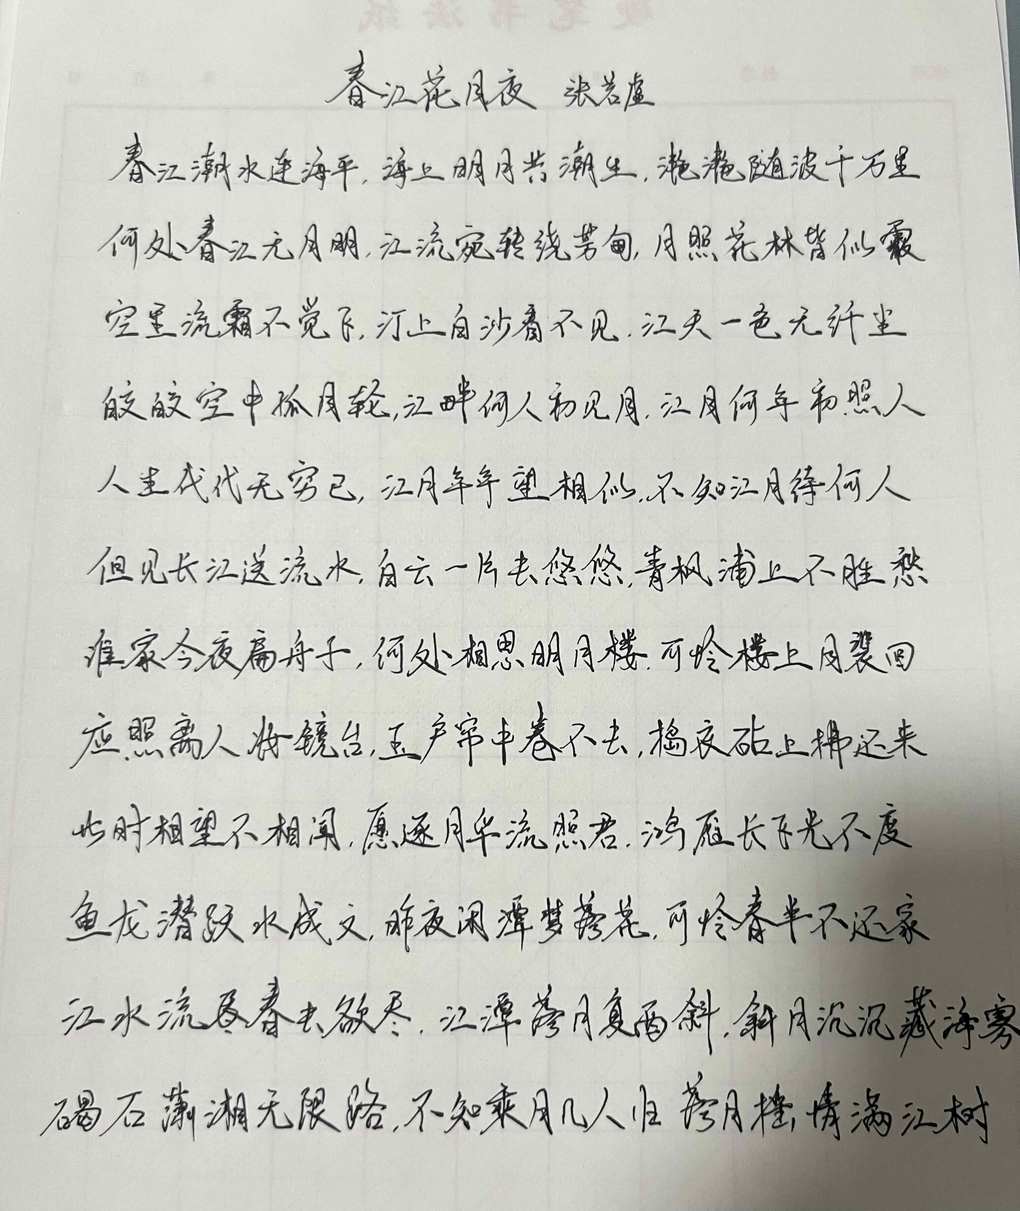 硬笔书法纸
春江花月夜 张若虚
春江潮水连海平,海上明月共潮生,滟滟随波千万里
何处春江无月明,江流宛转绕芳甸,月照花林皆似霰
空里流霜不觉飞,汀上白沙看不见.江天一色无纤尘
皎皎空中孤月轮,江畔何人初见月.江月何年初照人
人生代代无穷已,江月年年望相似.不知江月待何人
但见长江送流水,白云一片去悠悠,青枫浦上不胜愁
谁家今夜扁舟子,何处相思明月楼.可怜楼上月裴回
应照离人妆镜台,玉户帘中卷不去,捣衣砧上拂还来
此时相望不相闻,愿逐月华流照君.鸿雁长飞光不度
鱼龙潜跃水成文,昨夜闲潭梦落花,可怜春半不还家
江水流尽春去欲尽.江潭落月复西斜,斜月沉沉藏海雾
碣石潇湘无限路,不知乘月几人归 落月摇情满江树